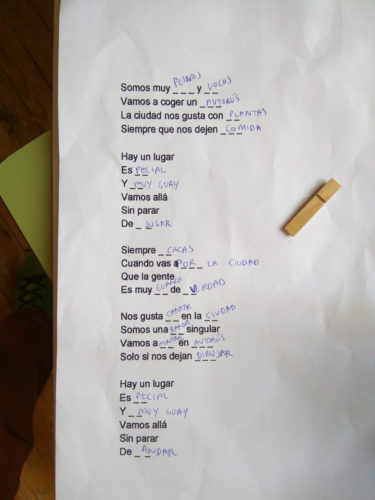 Somos muy PESADOS y LOCOS
Vamos a coger un AUTOBÚS
La ciudad nos gusta con PLANTAS
Siempre que nos dejen COMIDA
Hay un lugar
Es PECIAL
Y MUY GUAY
Vamos allá
Sin parar
De JUGAR
Siempre CACAS
Cuando vas a POR LA CIUDAD
Que la gente
Es muy GUARRA de VERDAD
Nos gusta CANTAR en la CIUDAD
Somos una BANDA singular
Vamos a MONTAR en AUTOBÚS
Solo si nos dejan DIBUJAR
Hay un lugar
Es PECIAL
Y MUY GUAY
Vamos allá
Sin parar
De ANDAR